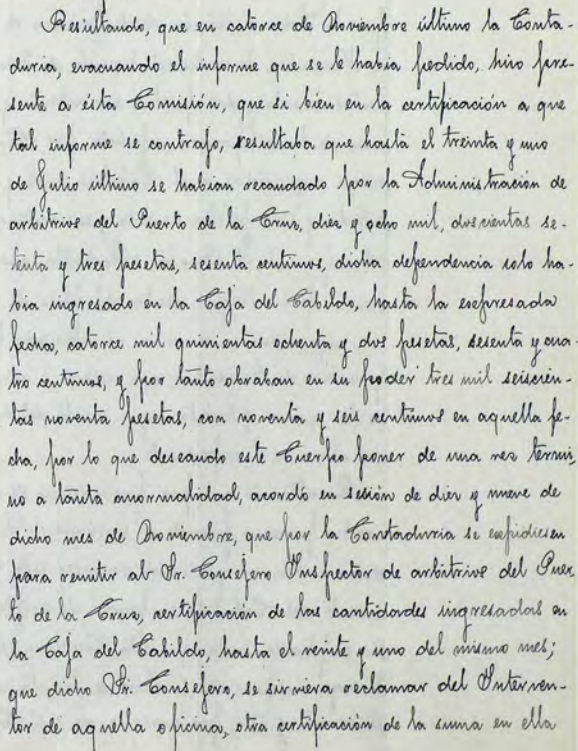 Resultando, que en catorce de Noviembre último la Conta-
duria, evacuando el informe que se le habia pedido, hizo pre-
sente a ésta Comisión, que si bien en la certificación a que
tal informe se contrajo, resultaba que hasta el treinta y uno
de Julio último se habian recaudado por la Administración de
arbitrios del Puerto de la Cruz, diez y ocho mil, doscientas se-
tenta y tres pesetas, sesenta centimos, dicha dependencia solo ha-
bia ingresado en la Caja del Cabildo, hasta la expresada
fecha, catorce mil quinientas ochenta y dos pesetas, sesenta y cua-
tro centimos, y por tanto obraban en su poder tres mil seiscien-
tas noventa pesetas, con noventa y seis centimos en aquella fe-
cha, por lo que deseando este Cuerpo poner de una vez térmi-
no a tánta anormalidad, acordó en sesión de diez y nueve de
dicho mes de Noviembre, que por la Contaduria se expidiesen
para remitir al Sr. Consejero Inspector de arbitrios del Puer-
to de la Cruz, certificación de las cantidades ingresadas en
la Caja del Cabildo, hasta el veinte y uno del mismo mes;
que dicho Sr. Consejero, se sirviera reclamar del Interven-
tor de aquella oficina, otra certificación de la suma en ella